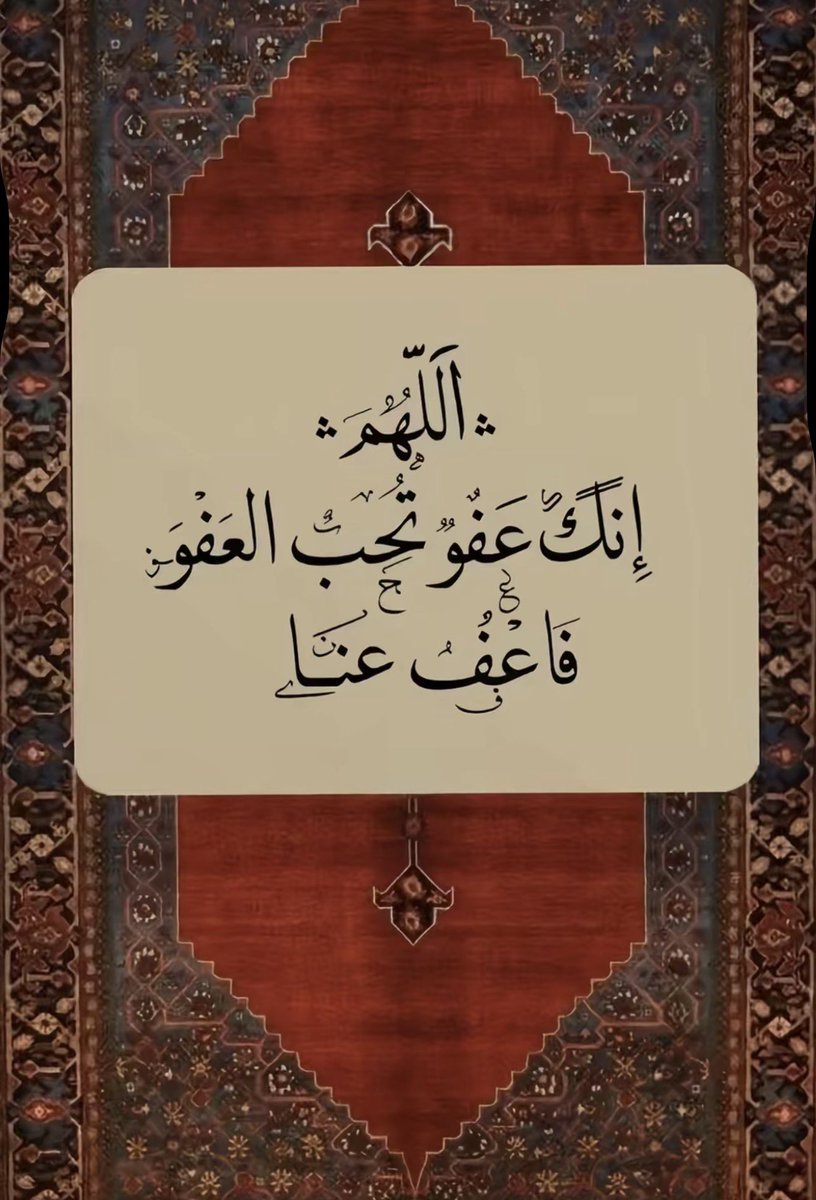 اَللّٰهُمَ
إِنكَ عَفُوٌ تُحِبُ العَفْوَ
فَاعْفُ عَنا